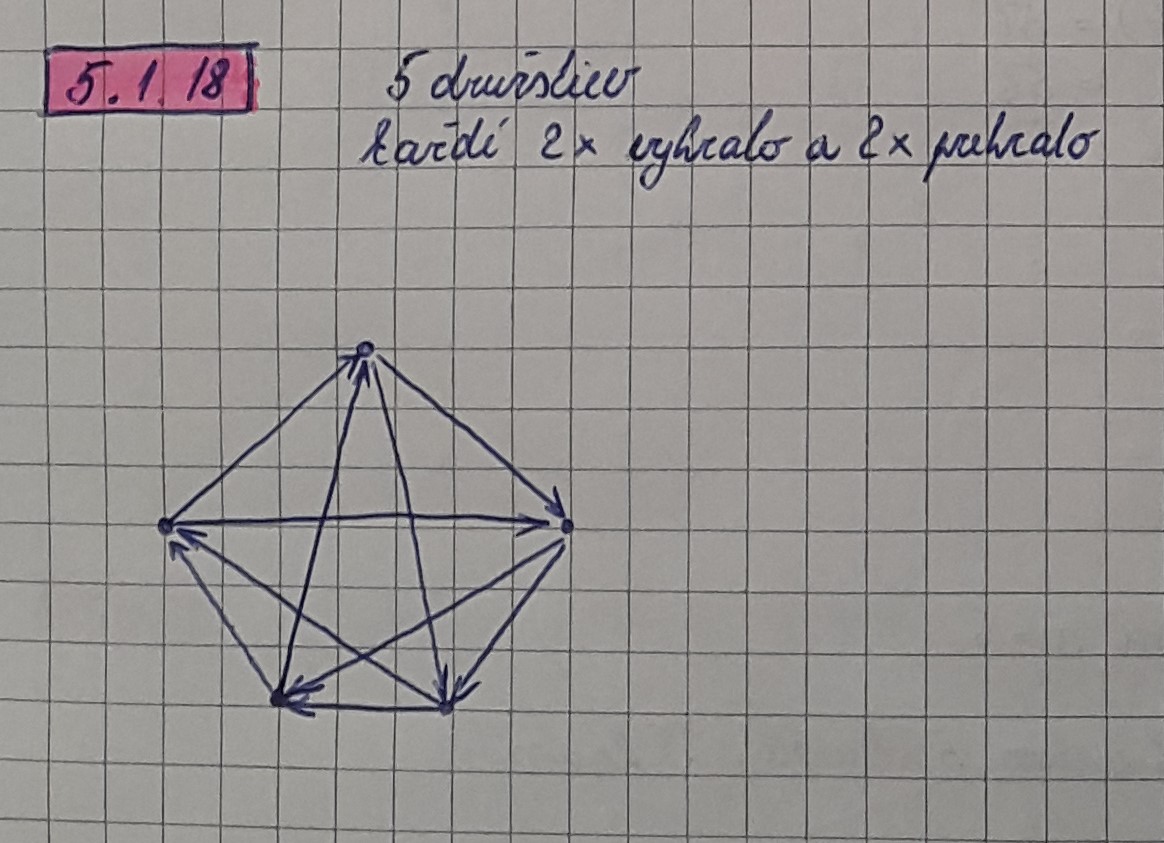 5.1.18
5 družstiev
každé 2x vyhralo a 2x prehralo